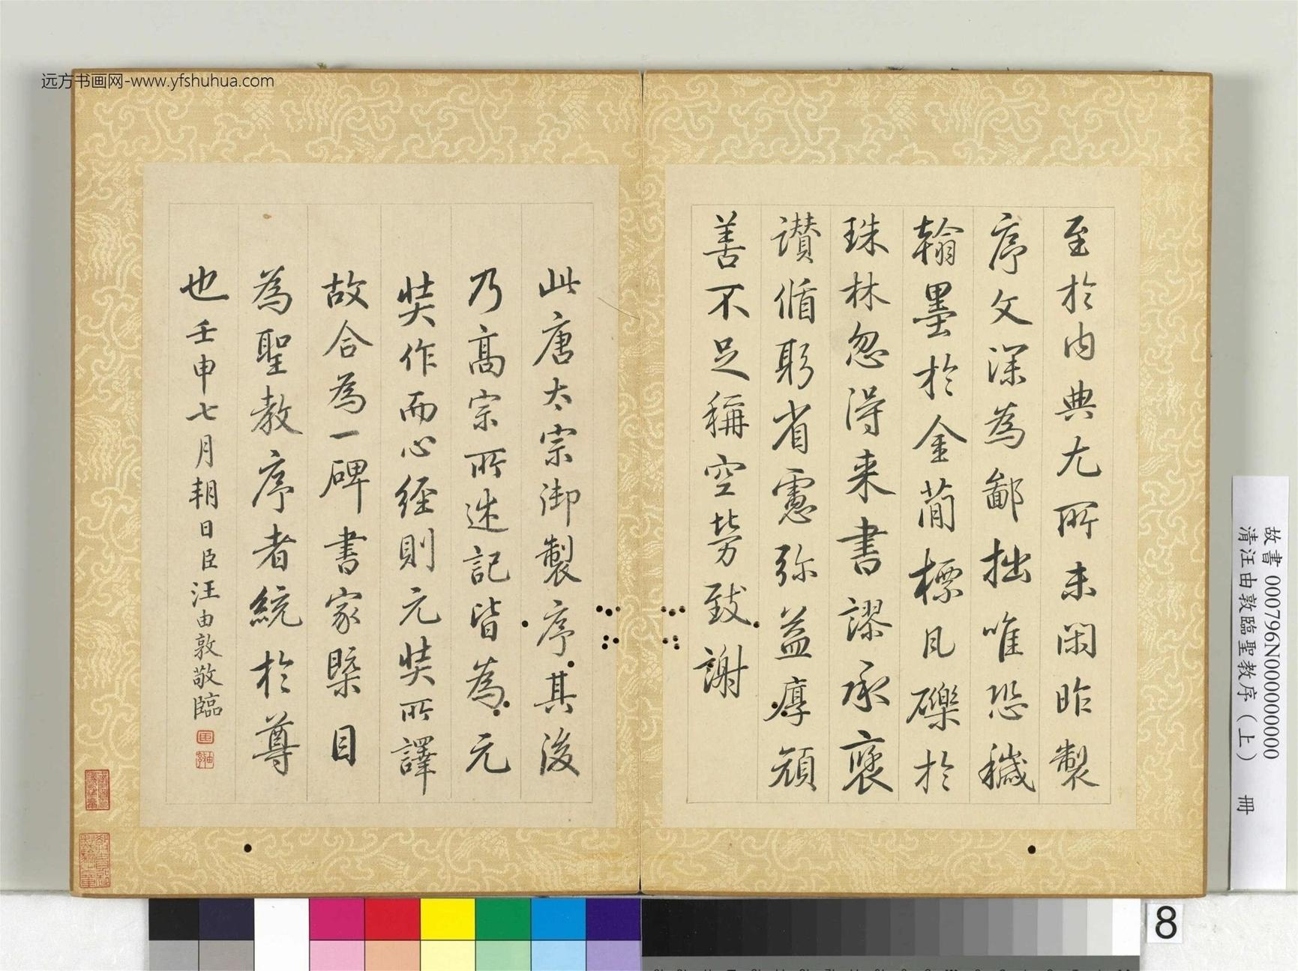 远方书画网-www.yfshuhua.com
至於内典尤所未閑昨製
序文深為鄙拙唯恐穢
翰墨於金蕳標瓦礫於
珠林忽得来書謬承褒
讃循躬省慮弥益厚顔
善不足稱空勞致謝
此唐太宗御製序其後
乃高宗所述記皆為元
奘作而心經則元奘所譯
故合為一碑書家槩目
為聖教序者統於尊
也壬申七月朝日臣汪由敦敬臨
故書 000796N000000000
清汪由敦臨聖教序（上） 冊
8